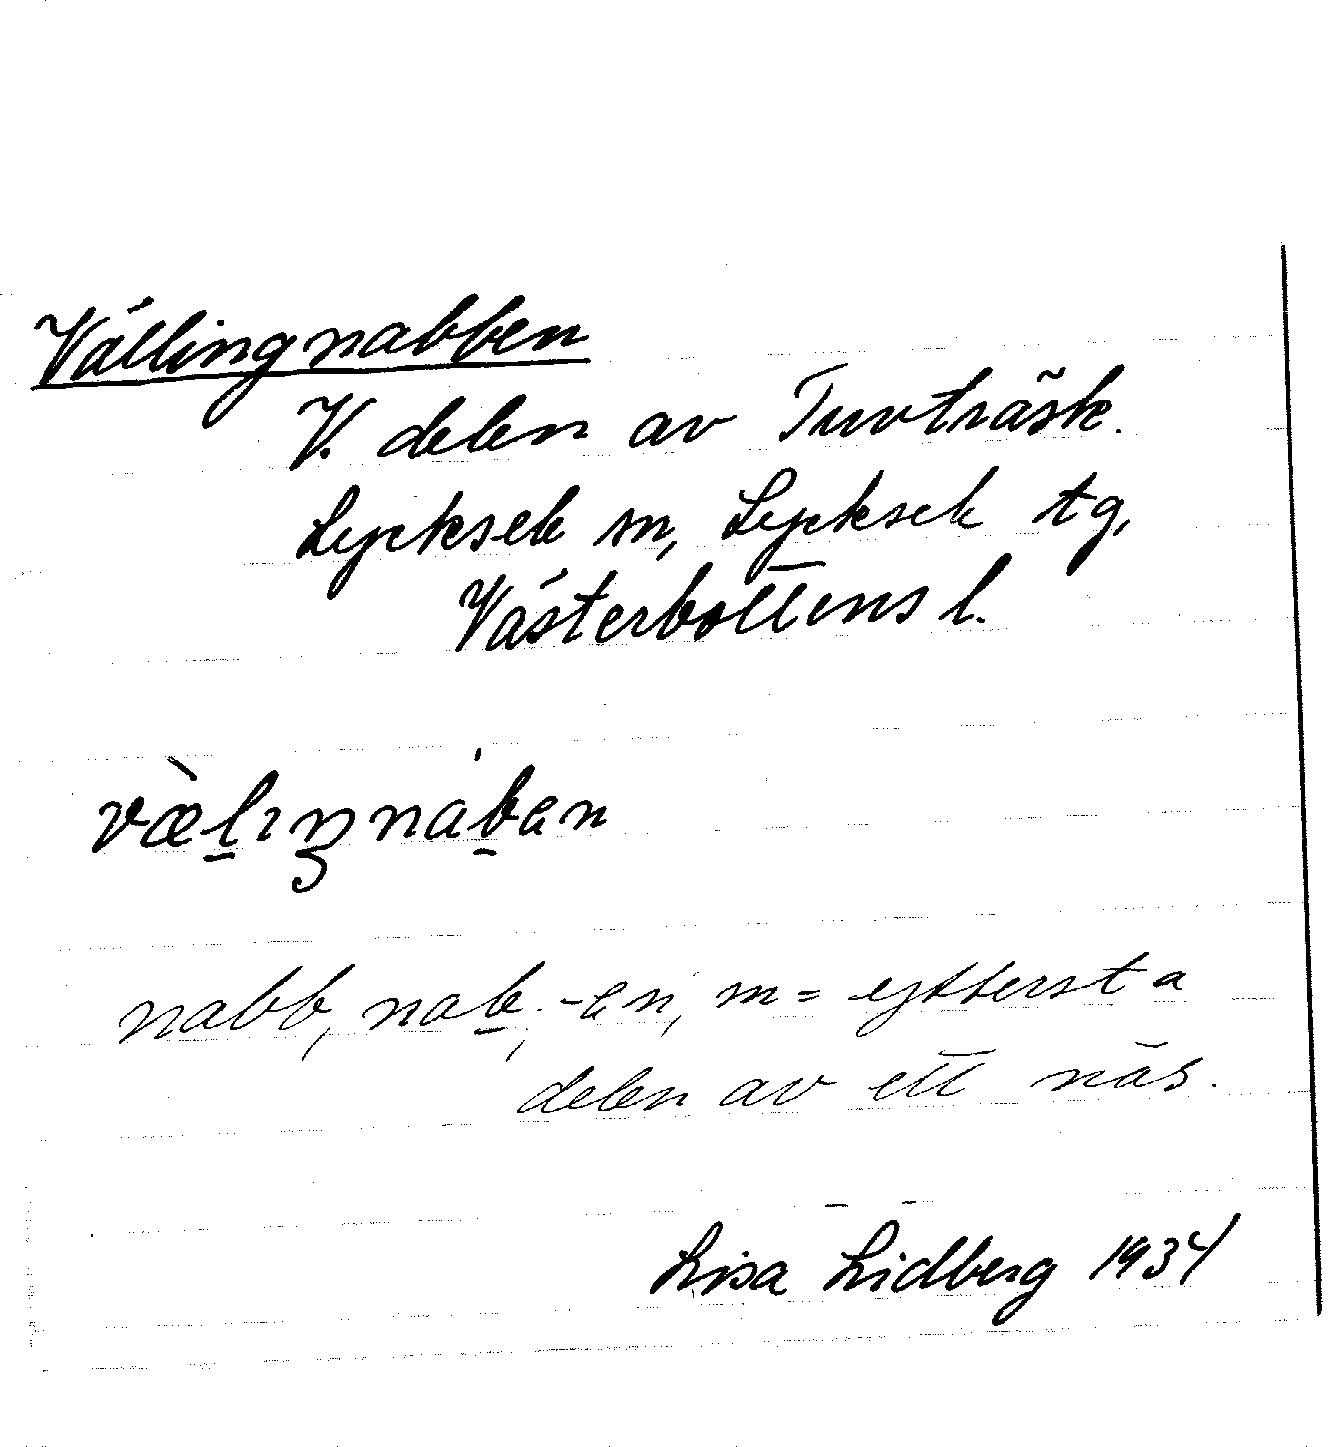 Vällingnabben
V. delen av Tuvträsk.
Lycksele sn, Lycksele tg,
Västerbottens l.
væ̀l̠ıŋnab̠ən
nabb, nab̠, -ən, m = yttersta
delen av ett näs.
Lisa Lidberg 1934